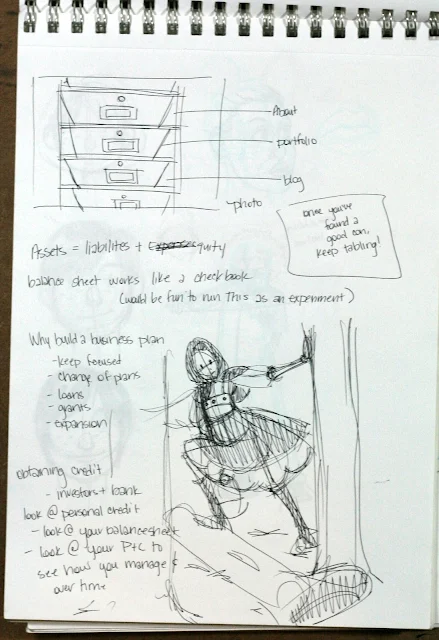 About
portfolio
blog
photo
once you've
found a
good con,
keep tabling!
Assets = liabilites + equity
balance sheet works like a checkbook
(would be fun to run This as an experiment)
Why build a business plan
- keep focused
- change of plans
- loans
- grants
- expansion
obtaining credit
- investors + bank
look @ personal credit
- look @ your balance sheet
- look @ your P+L to
see how you manage $
over time